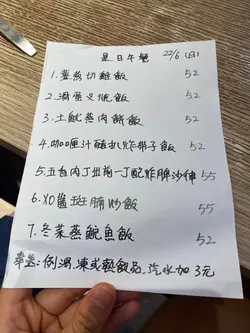 是日午餐 22/6 (日)
1. 薑葱切雞飯 52
2. 滑蛋叉燒飯 52
3. 土魷蒸肉餅飯 52
4. 咖喱汁豬扒炸帶子飯 52
5. 五香肉丁出前一丁配炸脾沙律 55
6. XO醬斑腩炒飯 55
7. 冬菜蒸鯇魚飯 52
奉送:例湯、凍或熱飲品、汽水加3元